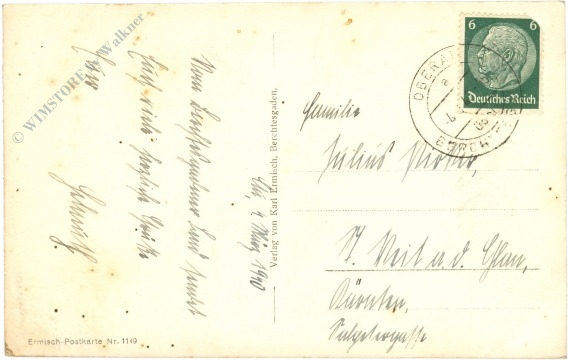 © WIMSTORE Walkner
Vom Berchtesgadener Land sendet
Euch viele herzliche Grüße
Euer
4 März 1940
Ermisch-Postkarte Nr. 1149
Verlag von Karl Ermisch, Berchtesgaden.
6 6
Deutsches Reich
OBERA
BERCH
Familie
Julius
St. Veit a. d. Glan,
Kärnten,
Salpetergasse